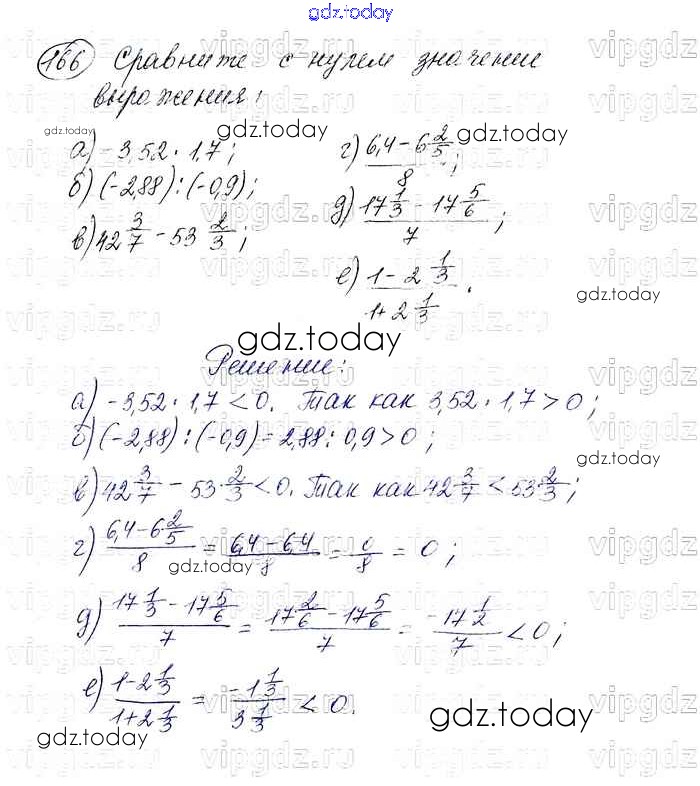 gdz.today
166 Сравните с нулем значение
выражения:
а) -3,52 · 1,7;
б) (-2,88) : (-0,9);
в) 42 3/7 - 53 2/3;
г) (6,4 - 6 2/5)/8;
д) (17 1/3 - 17 5/6)/7;
е) (1 - 2 1/3)/(1 + 2 1/3).
gdz.today
Решение:
а) -3,52 · 1,7 < 0. Так как 3,52 · 1,7 > 0;
б) (-2,88) : (-0,9) = 2,88 : 0,9 > 0;
в) 42 3/7 - 53 · 2/3 < 0. Так как 42 3/7 < 53 · 2/3;
г) (6,4 - 6 2/5)/8 = (6,4 - 6,4)/8 = 0/8 = 0;
д) (17 1/3 - 17 5/6)/7 = (17 2/6 - 17 5/6)/7 = (-17 1/2)/7 < 0;
е) (1 - 2 1/3)/(1 + 2 1/3) = (-1 1/3)/(3 1/3) < 0.
gdz.today
gdz.today